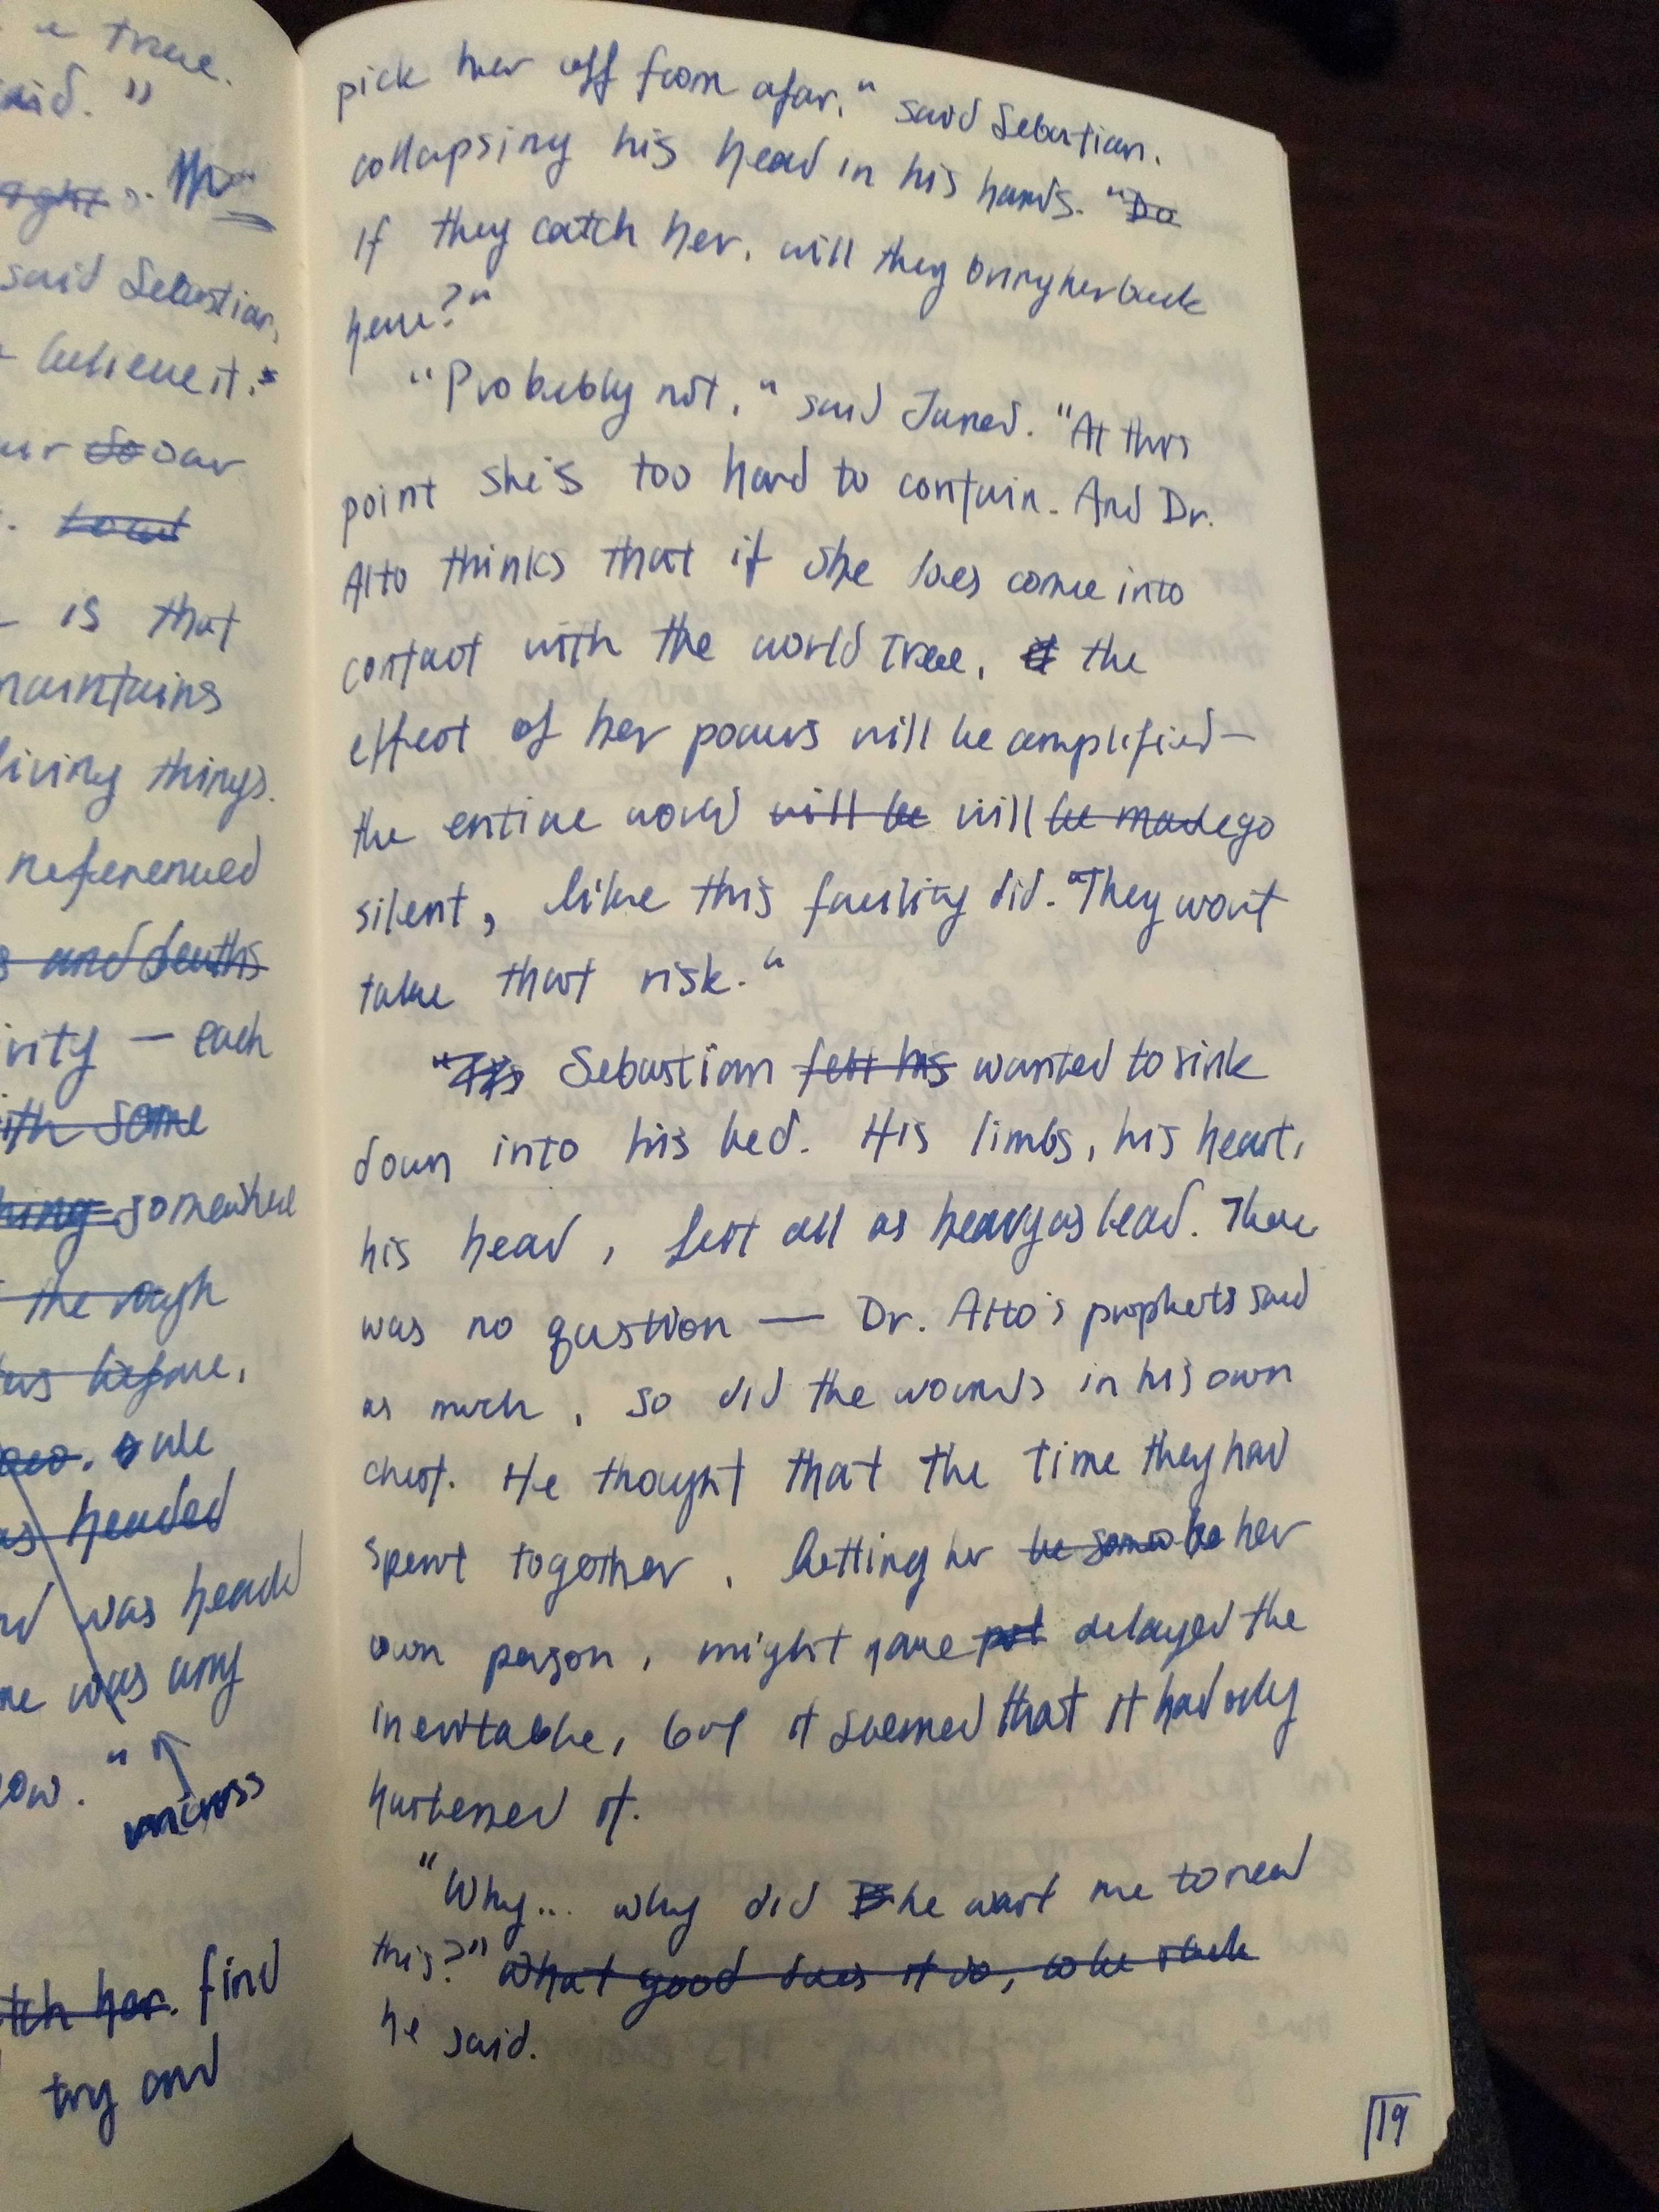 e tree.
said."
right
said Sebastian,
believe it."
our do our
toward
is that
maintains
living things.
referenced
s and deaths
ivity — each
ith some
hing somewhere
the rough
before,
we
as headed
was headed
was any
ow."
across
tch her. find
try and
pick her off from afar," said Sebastian,
collapsing his head in his hands. "Do
If they catch her, will they bring her back
here?"
"Probably not," said Jared. "At this
point she's too hard to contain. And Dr.
Alto thinks that if she does come into
contact with the world tree, it the
effect of her powers will be amplified—
the entire world will be will be made go
silent, like this facility did. "They won't
take that risk."
"This Sebastian felt his wanted to sink
down into his bed. His limbs, his heart,
his head, felt all as heavy as lead. There
was no qustion — Dr. Alto's prophets said
as much, so did the wounds in his own
chest. He thought that the time they had
spent together, letting her be some be her
own person, might have put delayed the
inevitable, but it seemed that it had only
hastened it.
"Why... why did she want me to read
this?" What good does it do,
he said.
19